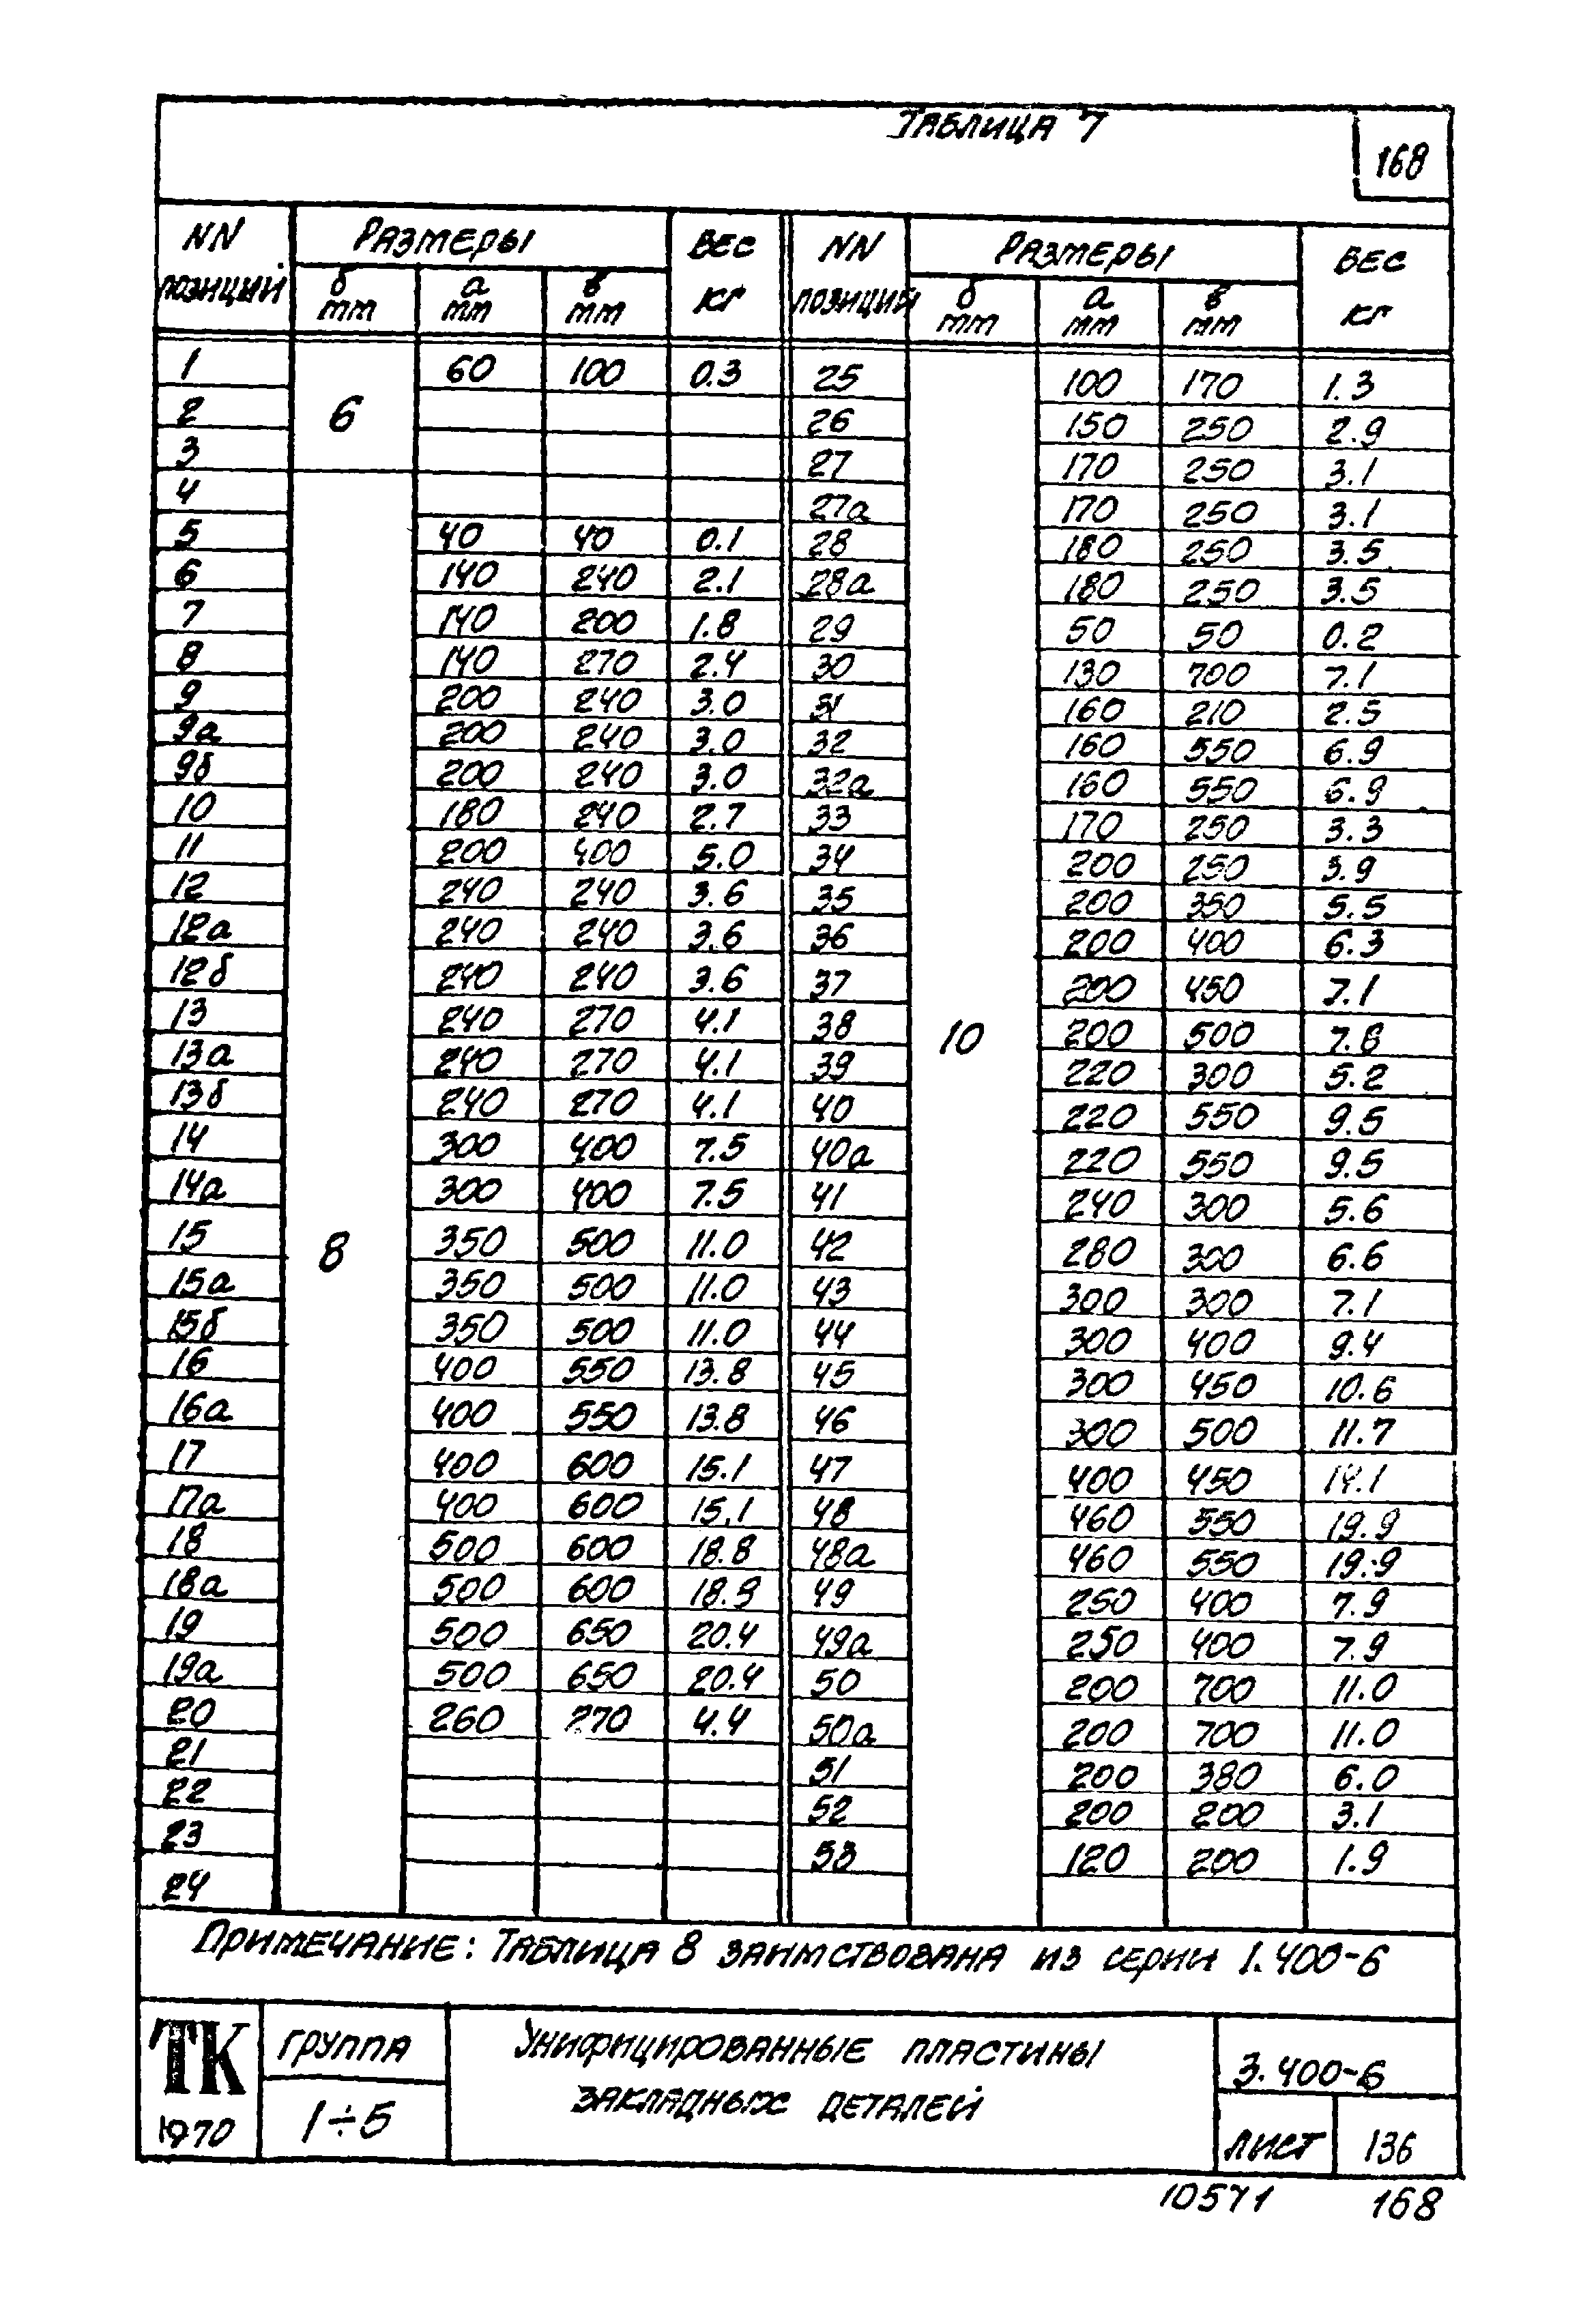 ТАБЛИЦА 7
168
NN ПОЗИЦИЙ РАЗМЕРЫ ВЕС КГ NN ПОЗИЦИЙ РАЗМЕРЫ ВЕС КГ
б mm а mm в mm б mm а mm в mm
1 6 60 100 0.3 25 10 100 170 1.3
2 26 150 250 2.9
3 27 170 250 3.1
4 8 27а 170 250 3.1
5 40 40 0.1 28 180 250 3.5
6 140 240 2.1 28а 180 250 3.5
7 140 200 1.8 29 50 50 0.2
8 140 270 2.4 30 130 700 7.1
9 200 240 3.0 31 160 210 2.5
9а 200 240 3.0 32 160 550 6.9
9б 200 240 3.0 32а 160 550 6.9
10 180 240 2.7 33 170 250 3.3
11 200 400 5.0 34 200 250 3.9
12 240 240 3.6 35 200 350 5.5
12а 240 240 3.6 36 200 400 6.3
12б 240 240 3.6 37 200 450 7.1
13 240 270 4.1 38 200 500 7.8
13а 240 270 4.1 39 220 300 5.2
13б 240 270 4.1 40 220 550 9.5
14 300 400 7.5 40а 220 550 9.5
14а 300 400 7.5 41 240 300 5.6
15 350 500 11.0 42 280 300 6.6
15а 350 500 11.0 43 300 300 7.1
15б 350 500 11.0 44 300 400 9.4
16 400 550 13.8 45 300 450 10.6
16а 400 550 13.8 46 300 500 11.7
17 400 600 15.1 47 400 450 14.1
17а 400 600 15.1 48 460 550 19.9
18 500 600 18.8 48а 460 550 19.9
18а 500 600 18.8 49 250 400 7.9
19 500 650 20.4 49а 250 400 7.9
19а 500 650 20.4 50 200 700 11.0
20 260 270 4.4 50а 200 700 11.0
21 51 200 380 6.0
22 52 200 200 3.1
23 53 120 200 1.9
24
ПРИМЕЧАНИЕ: ТАБЛИЦА 8 ЗАИМСТВОВАНА ИЗ СЕРИИ 1.400-6
ТК
1970
ГРУППА
1÷5
УНИФИЦИРОВАННЫЕ ПЛАСТИНЫ
ЗАКЛАДНЫХ ДЕТАЛЕЙ
3.400-6
ЛИСТ 136
10571 168